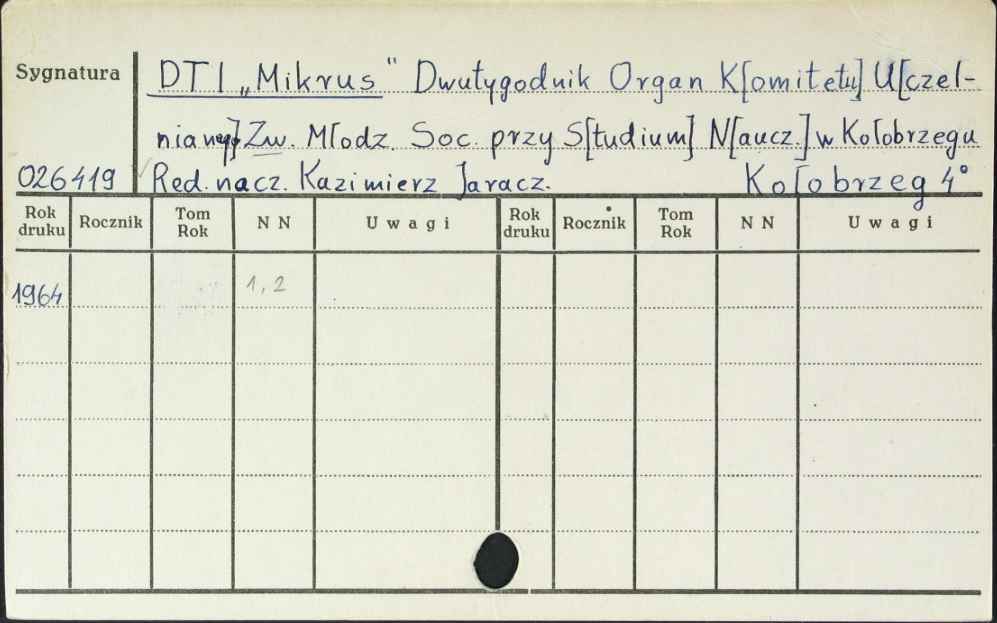 Sygnatura
DTI „Mikrus" Dwutygodnik Organ K[omitetu] U[czel-
nianego] Zw. Młodz. Soc. przy S[tudium] N[aucz.] w Kołobrzegu
026419 Red. nacz. Kazimierz Jaracz. Kołobrzeg 4°
Rok druku Rocznik Tom Rok N N Uwagi Rok druku Rocznik Tom Rok N N Uwagi
1964 1, 2